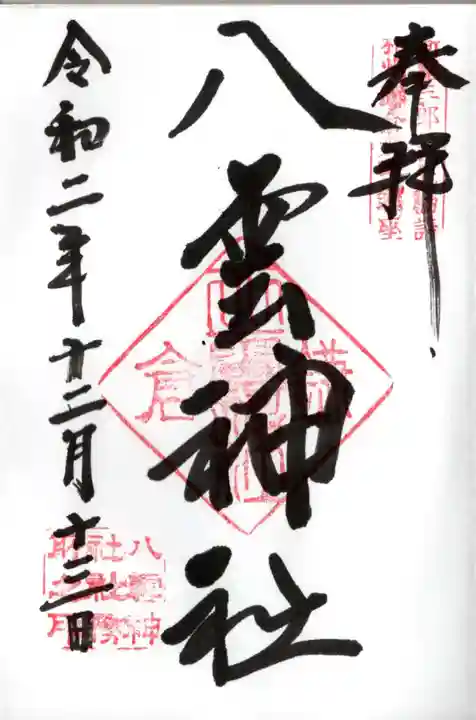 奉拝
八雲神社
鎌倉
令和二年十二月十三日
八雲神
社社務
所之印